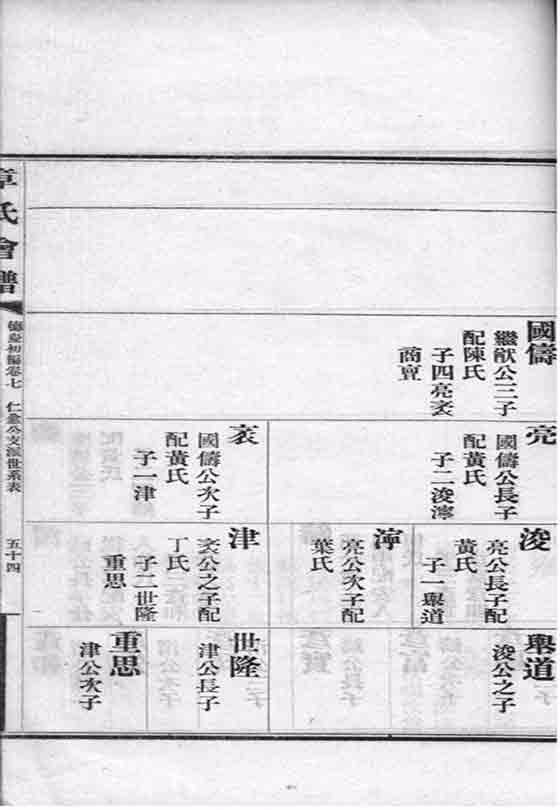 國儔
繼猷公三子
配陳氏
子四亮衮
商亶
亮
國儔公長子
配黃氏
子二浚濘
衮
國儔公次子
配黃氏
子一津
浚
亮公長子配
黃氏
子一舉道
濘
亮公次子配
葉氏
津
衮公之子配
丁氏
子二世隆
重思
舉道
浚公之子
世隆
津公長子
重思
津公次子
章氏會譜
德慶初編卷七
仁公支派世系表
五十四